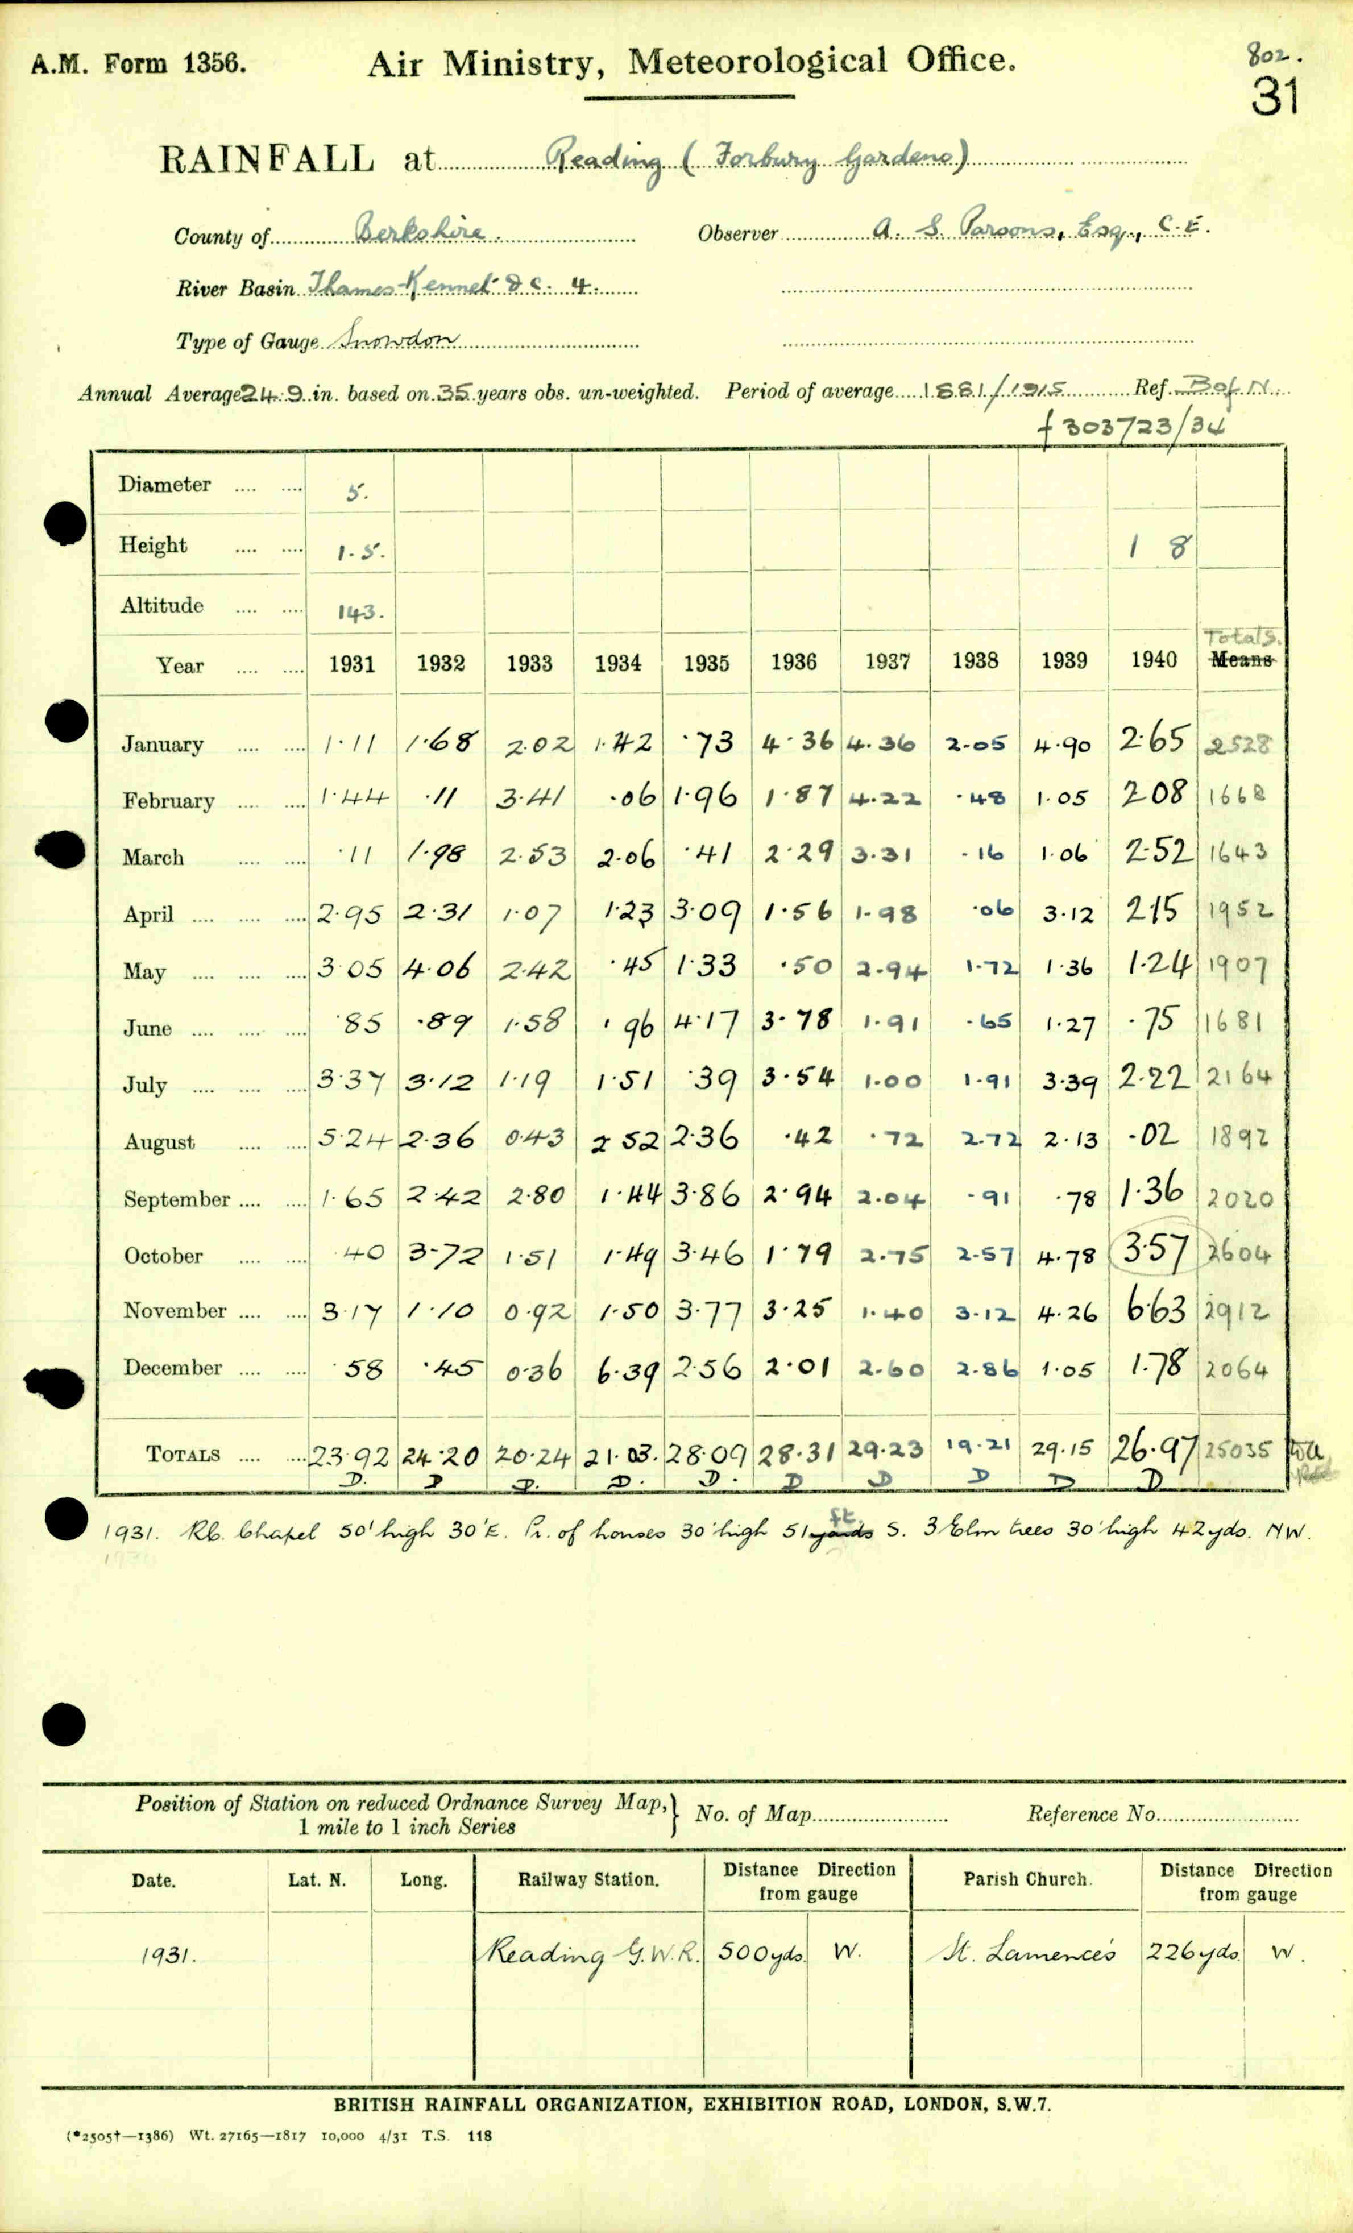 A.M. Form 1356.
Air Ministry, Meteorological Office.
802.
31
RAINFALL at Reading (Forbury Gardens)
County of Berkshire. Observer A. S. Parsons, Esq., C.E.
River Basin Thames-Kennet &c. 4.
Type of Gauge Snowdon
Annual Average 24.9 in. based on 35 years obs. un-weighted. Period of average 1881/1915 Ref. B of N.
f 303723/34
Diameter 5.
Height 1.5. 1 8
Altitude 143.
Totals.
Year 1931 1932 1933 1934 1935 1936 1937 1938 1939 1940 Means
January 1.11 1.68 2.02 1.42 .73 4.36 4.36 2.05 4.90 2.65 2528
February 1.44 .11 3.41 .06 1.96 1.87 4.22 .48 1.05 2.08 1668
March .11 1.98 2.53 2.06 .41 2.29 3.31 .16 1.06 2.52 1643
April 2.95 2.31 1.07 1.23 3.09 1.56 1.98 .06 3.12 2.15 1952
May 3.05 4.06 2.42 .45 1.33 .50 2.94 1.72 1.36 1.24 1907
June .85 .89 1.58 .96 4.17 3.78 1.91 .65 1.27 .75 1681
July 3.37 3.12 1.19 1.51 .39 3.54 1.00 1.91 3.39 2.22 2164
August 5.24 2.36 0.43 2.52 2.36 .42 .72 2.72 2.13 .02 1892
September 1.65 2.42 2.80 1.44 3.86 2.94 2.04 .91 .78 1.36 2020
October .40 3.72 1.51 1.49 3.46 1.79 2.75 2.57 4.78 3.57 2604
November 3.17 1.10 0.92 1.50 3.77 3.25 1.40 3.12 4.26 6.63 2912
December .58 .45 0.36 6.39 2.56 2.01 2.60 2.86 1.05 1.78 2064
TOTALS 23.92 24.20 20.24 21.03. 28.09 28.31 29.23 19.21 29.15 26.97 25035
D. D D. D. D. D D D D D
ft.
1931. R.C. Chapel 50' high 30' E. Pr. of houses 30' high 51 yards S. 3 Elm trees 30' high 42 yds. NW.
Position of Station on reduced Ordnance Survey Map, 1 mile to 1 inch Series } No. of Map Reference No.
Date. Lat. N. Long. Railway Station. Distance Direction from gauge Parish Church. Distance Direction from gauge
1931. Reading G.W.R. 500 yds. W. St. Lawrence's 226 yds. W.
BRITISH RAINFALL ORGANIZATION, EXHIBITION ROAD, LONDON, S.W.7.
(*2505†—1386) Wt. 27165—1817 10,000 4/31 T.S. 118